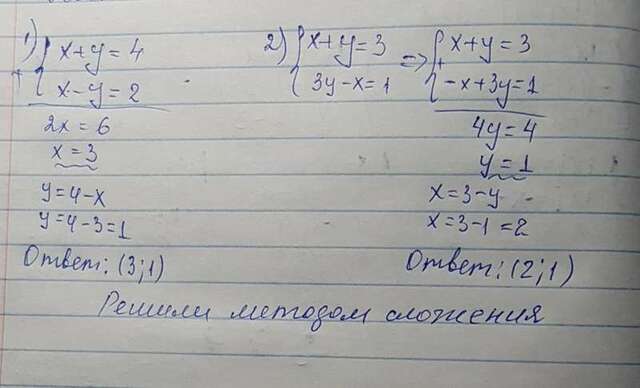 1) { x+y=4
+ { x-y=2
2x=6
x=3
y=4-x
y=4-3=1
Ответ: (3;1)
2) { x+y=3 => { x+y=3
{ 3y-x=1 + { -x+3y=1
4y=4
y=1
x=3-y
x=3-1=2
Ответ: (2;1)
Решили методом сложения